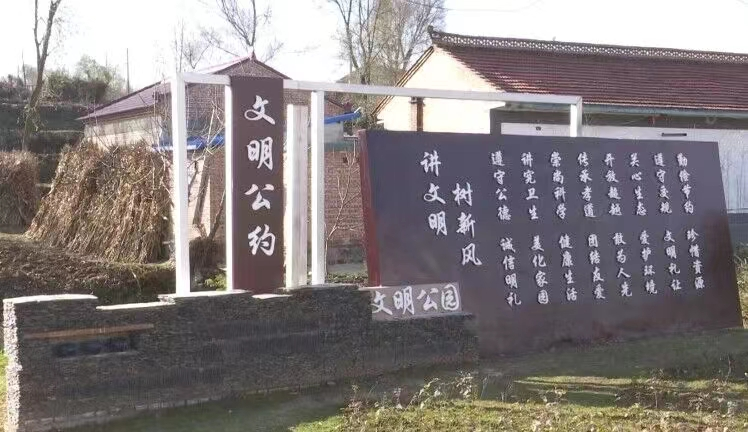 文明公约
讲文明
树新风
遵守公德 诚信明礼
讲究卫生 美化家园
崇尚科学 健康生活
传承孝道 团结友爱
开放超越 敢为人先
关心生态 爱护环境
遵守交规 文明礼让
勤俭节约 珍惜资源
文明公园